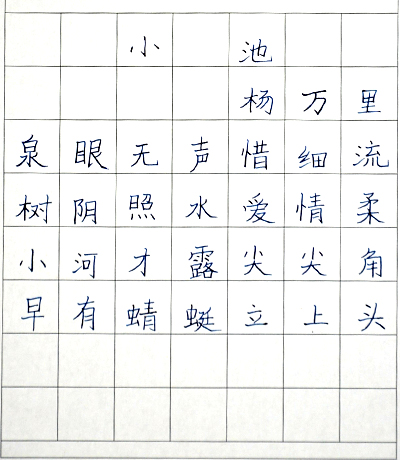 小池
杨万里
泉眼无声惜细流
树阴照水爱情柔
小河才露尖尖角
早有蜻蜓立上头